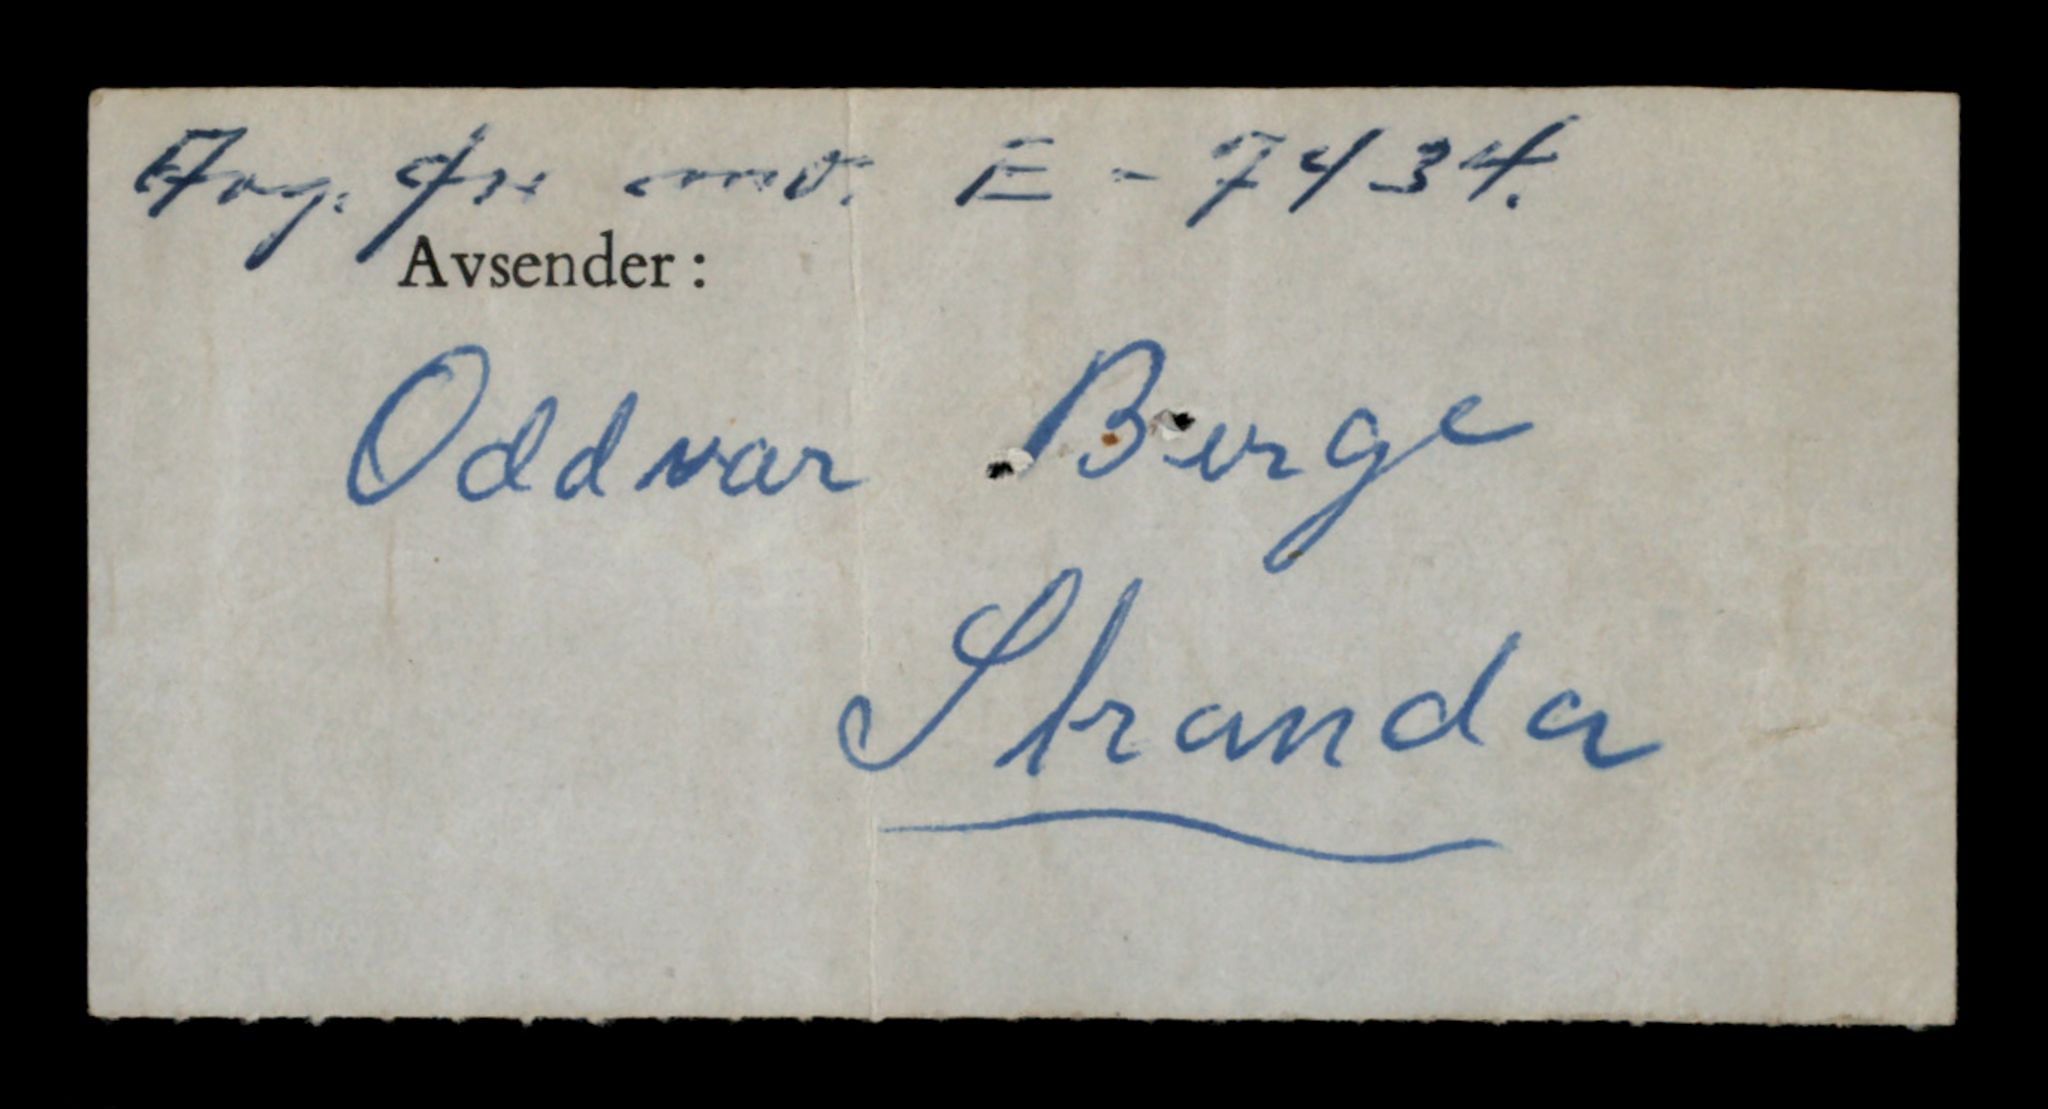 E - 7434.
Avsender:
Oddvar Berge
Stranda